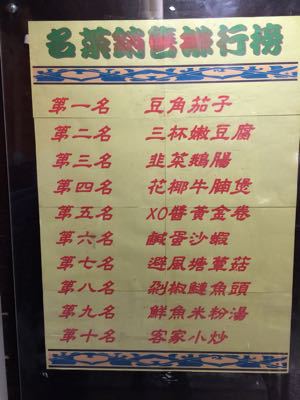 名菜銷售排行榜
第一名 豆角茄子
第二名 三杯嫩豆腐
第三名 韭菜鵝腸
第四名 花椰牛腩煲
第五名 XO醬黃金卷
第六名 鹹蛋沙蝦
第七名 避風塘蕈菇
第八名 剁椒鰱魚頭
第九名 鮮魚米粉湯
第十名 客家小炒